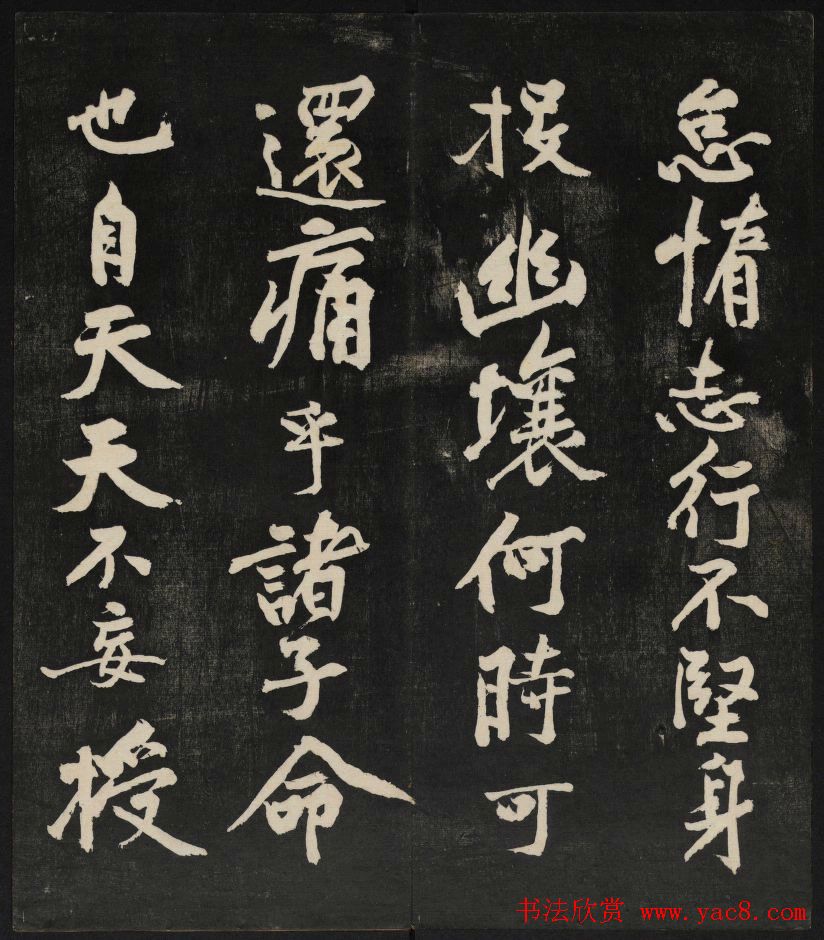 怠惰志行不堅身
投幽壤何時可
還痛乎諸子命
也自天天不妄授
书法欣赏 www.yac8.com